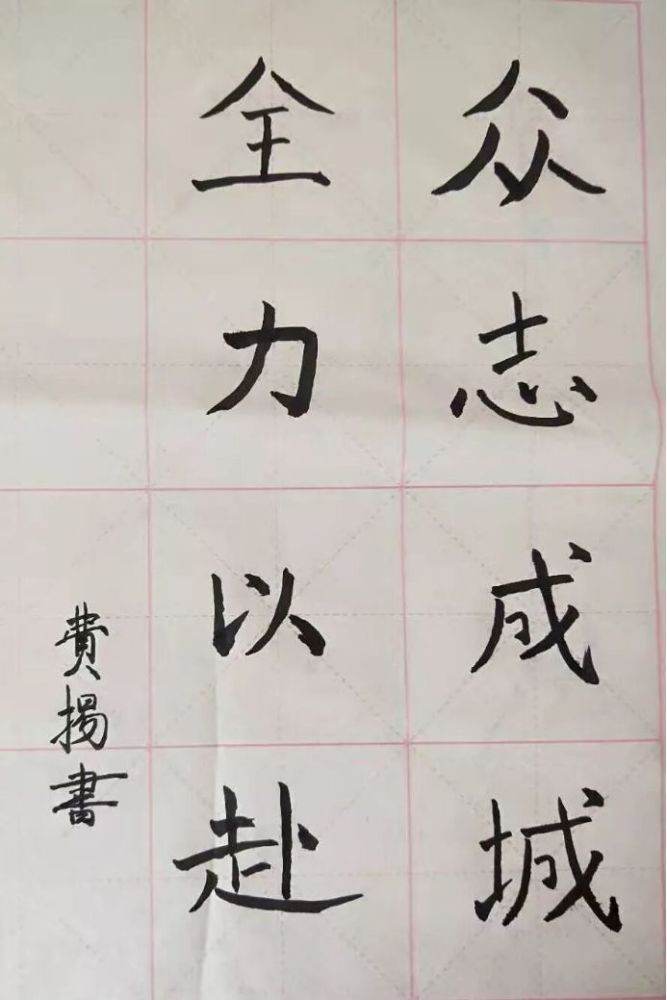 众志成城
全力以赴
費揚書